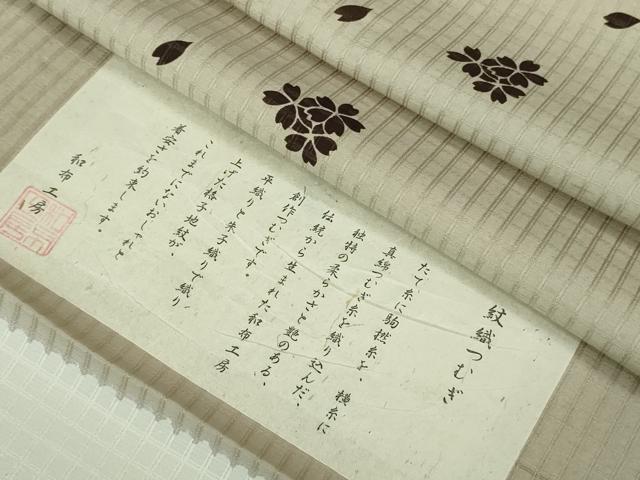 紋織つむぎ
たて糸に駒撚糸を、 横糸に
真綿つむぎ糸を織り込んだ、
独特の柔らかさと艶のある、
伝統から生まれた和布工房
創作つむぎです。
平織りと朱子織りで織り
上げた格子地紋が、
これまでにないおしゃれと
着安さを約束します。
和布工房